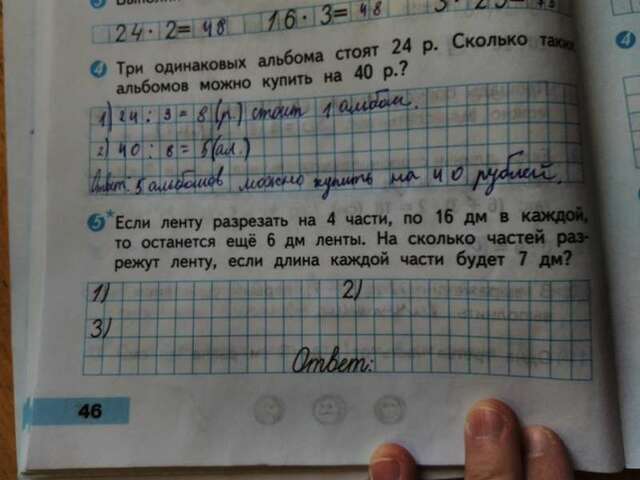 24 · 2 = 48 16 · 3 = 48
4 Три одинаковых альбома стоят 24 р. Сколько таких
альбомов можно купить на 40 р.?
1) 24 : 3 = 8 (р.) стоит 1 альбом.
2) 40 : 8 = 5 (ал.)
Ответ: 5 альбомов можно купить на 40 рублей.
5* Если ленту разрезать на 4 части, по 16 дм в каждой,
то останется ещё 6 дм ленты. На сколько частей раз-
режут ленту, если длина каждой части будет 7 дм?
1) 2)
3)
Ответ:
46
4